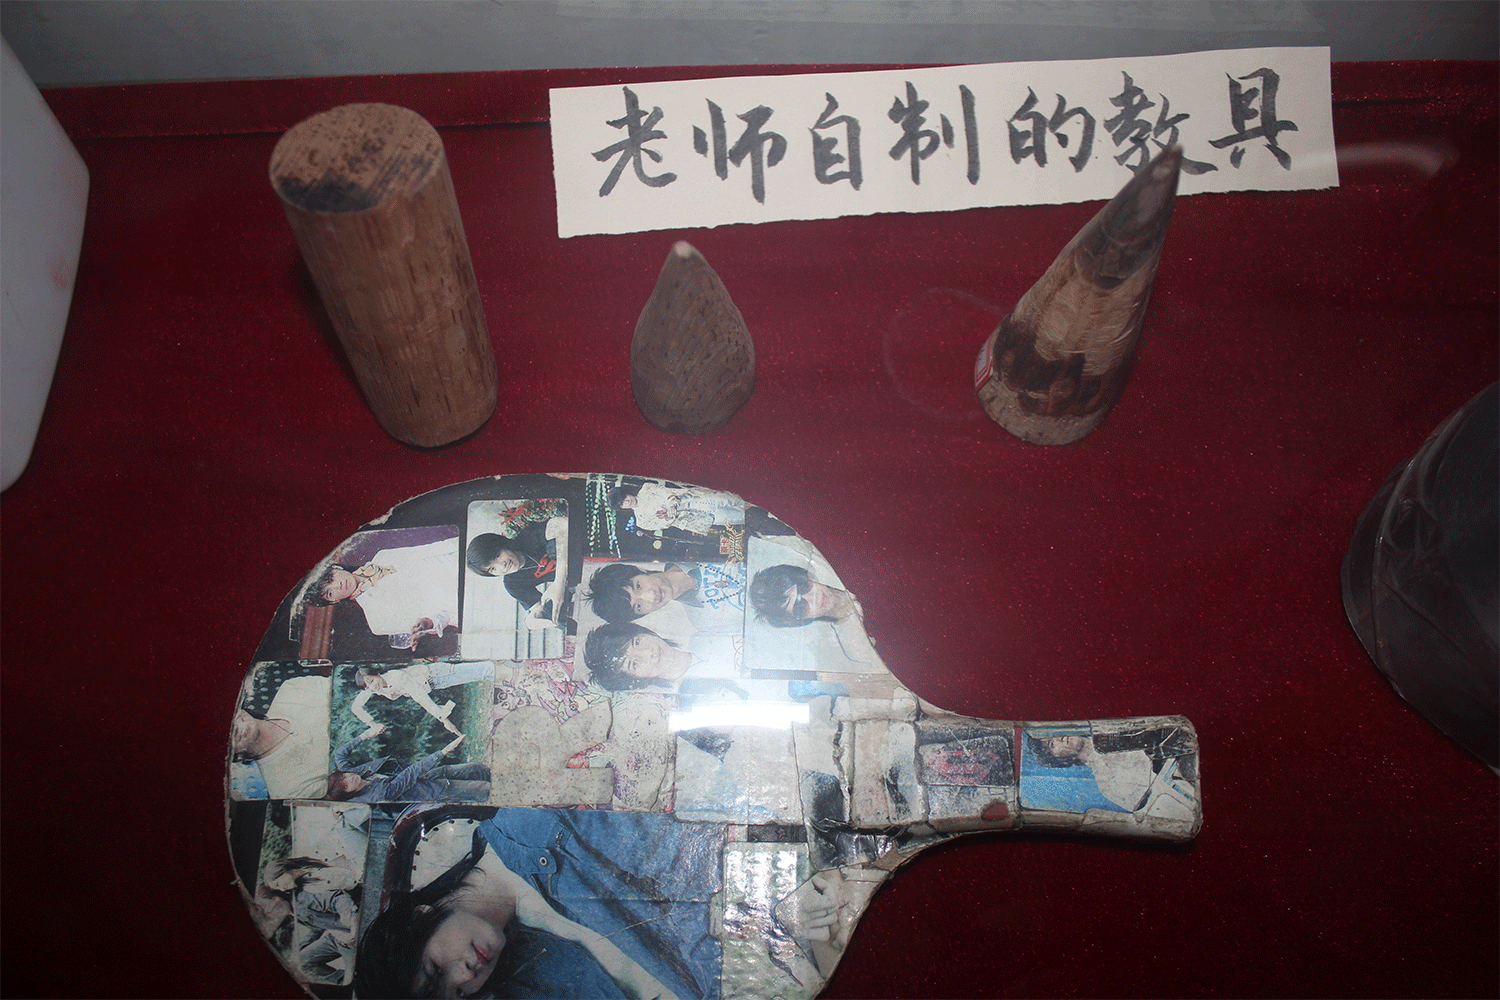 老师自制的教具